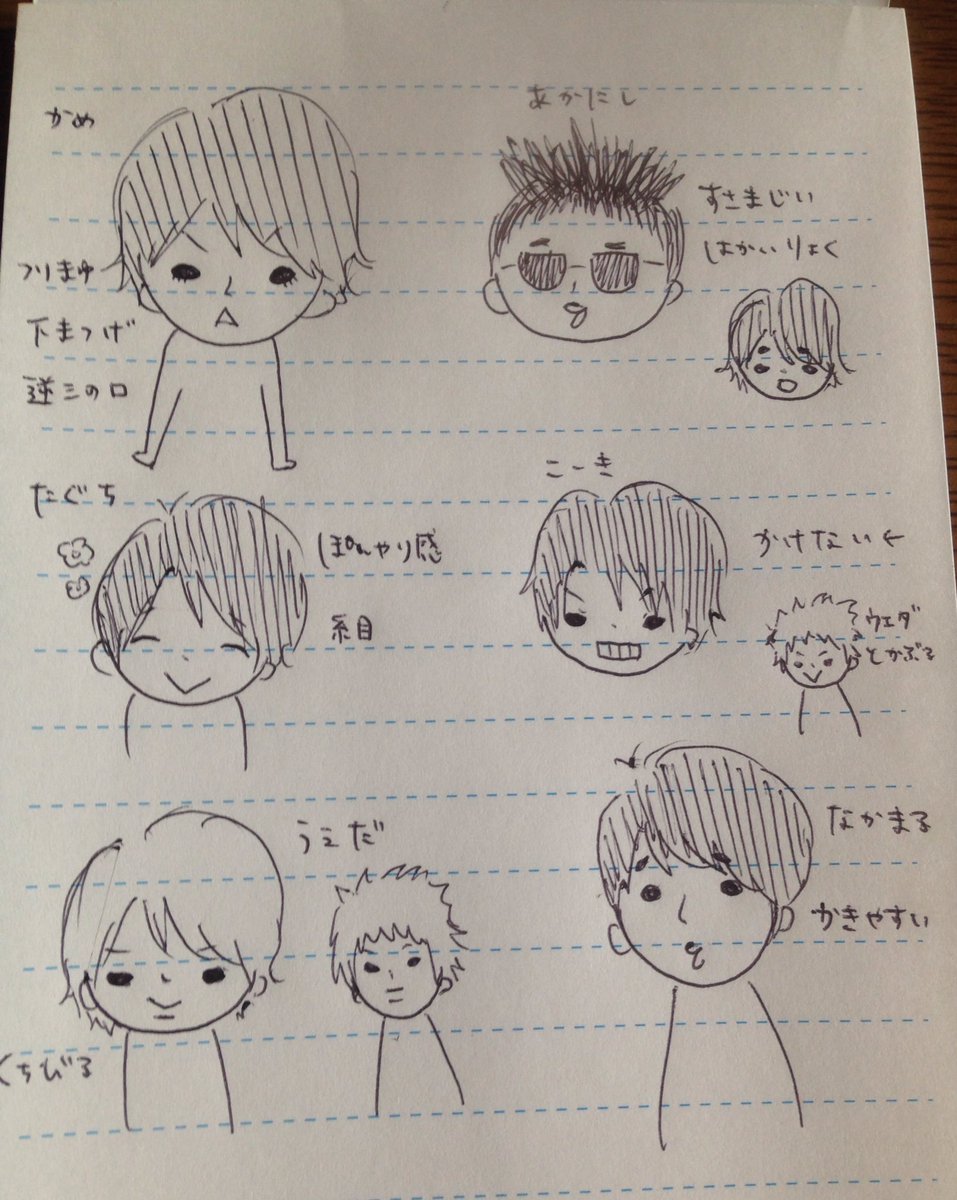 かめ
つりまゆ
下まつげ
逆三の口
あかにし
すさまじい
はかいりょく
たぐち
ぽんやり感
糸目
こーき
かけない←
ウエダ
とかぶる
うえだ
くちびる
なかまる
かきやすい